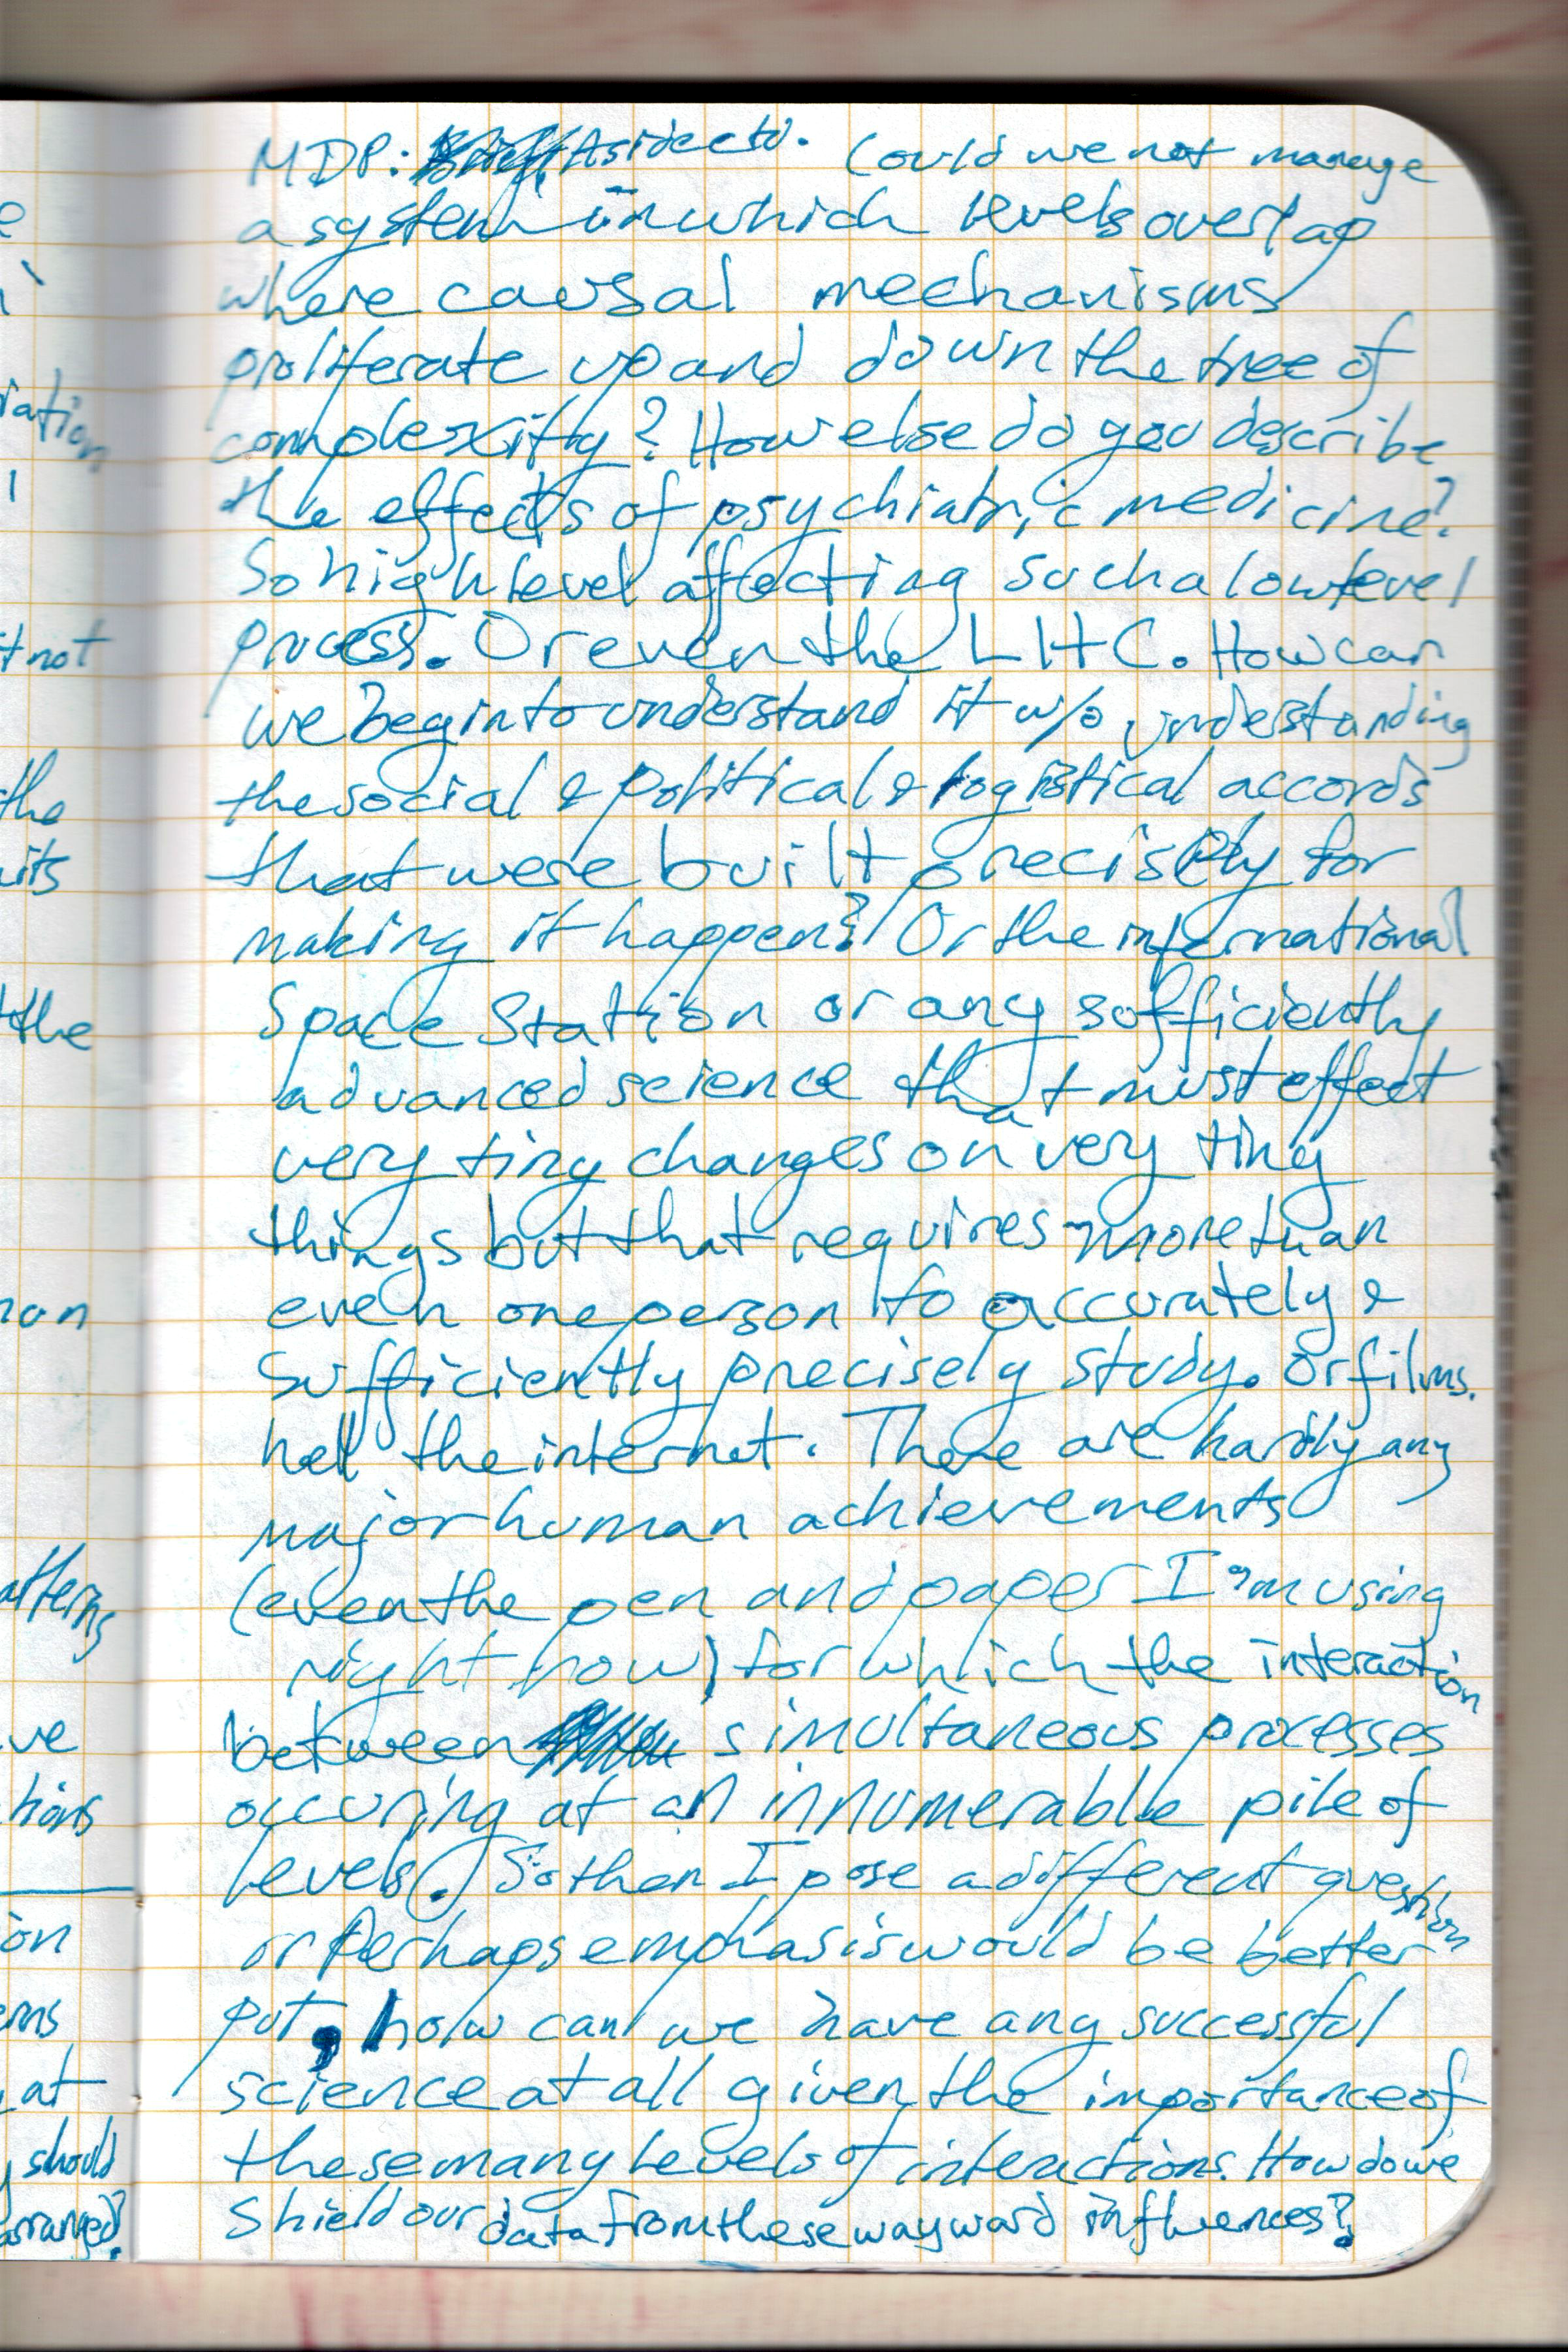 MDP: Asideeto. Could we not manage
a system in which levels overlap
where causal mechanisms
proliferate up and down the tree of
complexity? How else do you describe
the effects of psychiatric medicine?
So high level affecting such a low level
process. Or even the LHC. How can
we begin to understand it w/o understanding
the social & political & logistical accords
that were built precisely for
making it happen? Or the international
Space Station or any sufficiently
advanced science that must effect
very tiny changes on very tiny
things but that requires more than
even one person to accurately &
sufficiently precisely study. Or films.
hell the internet. There are hardly any
major human achievements
(even the pen and paper I'm using
right now) for which the interaction
between simultaneous processes
occuring at an innumerable pile of
levels. So then I pose a different question
or Perhaps emphasis would be better
put, how can we have any successful
science at all given the importance of
these many levels of interactions. How do we
shield our data from these wayward influences?
iation
t not
the
the
ve
at
should
arranged?